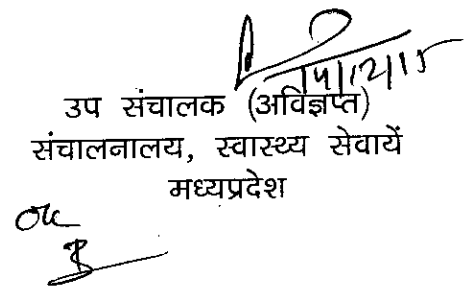 14/12/15
उप संचालक (अविज्ञप्त)
संचालनालय, स्वास्थ्य सेवायें
मध्यप्रदेश